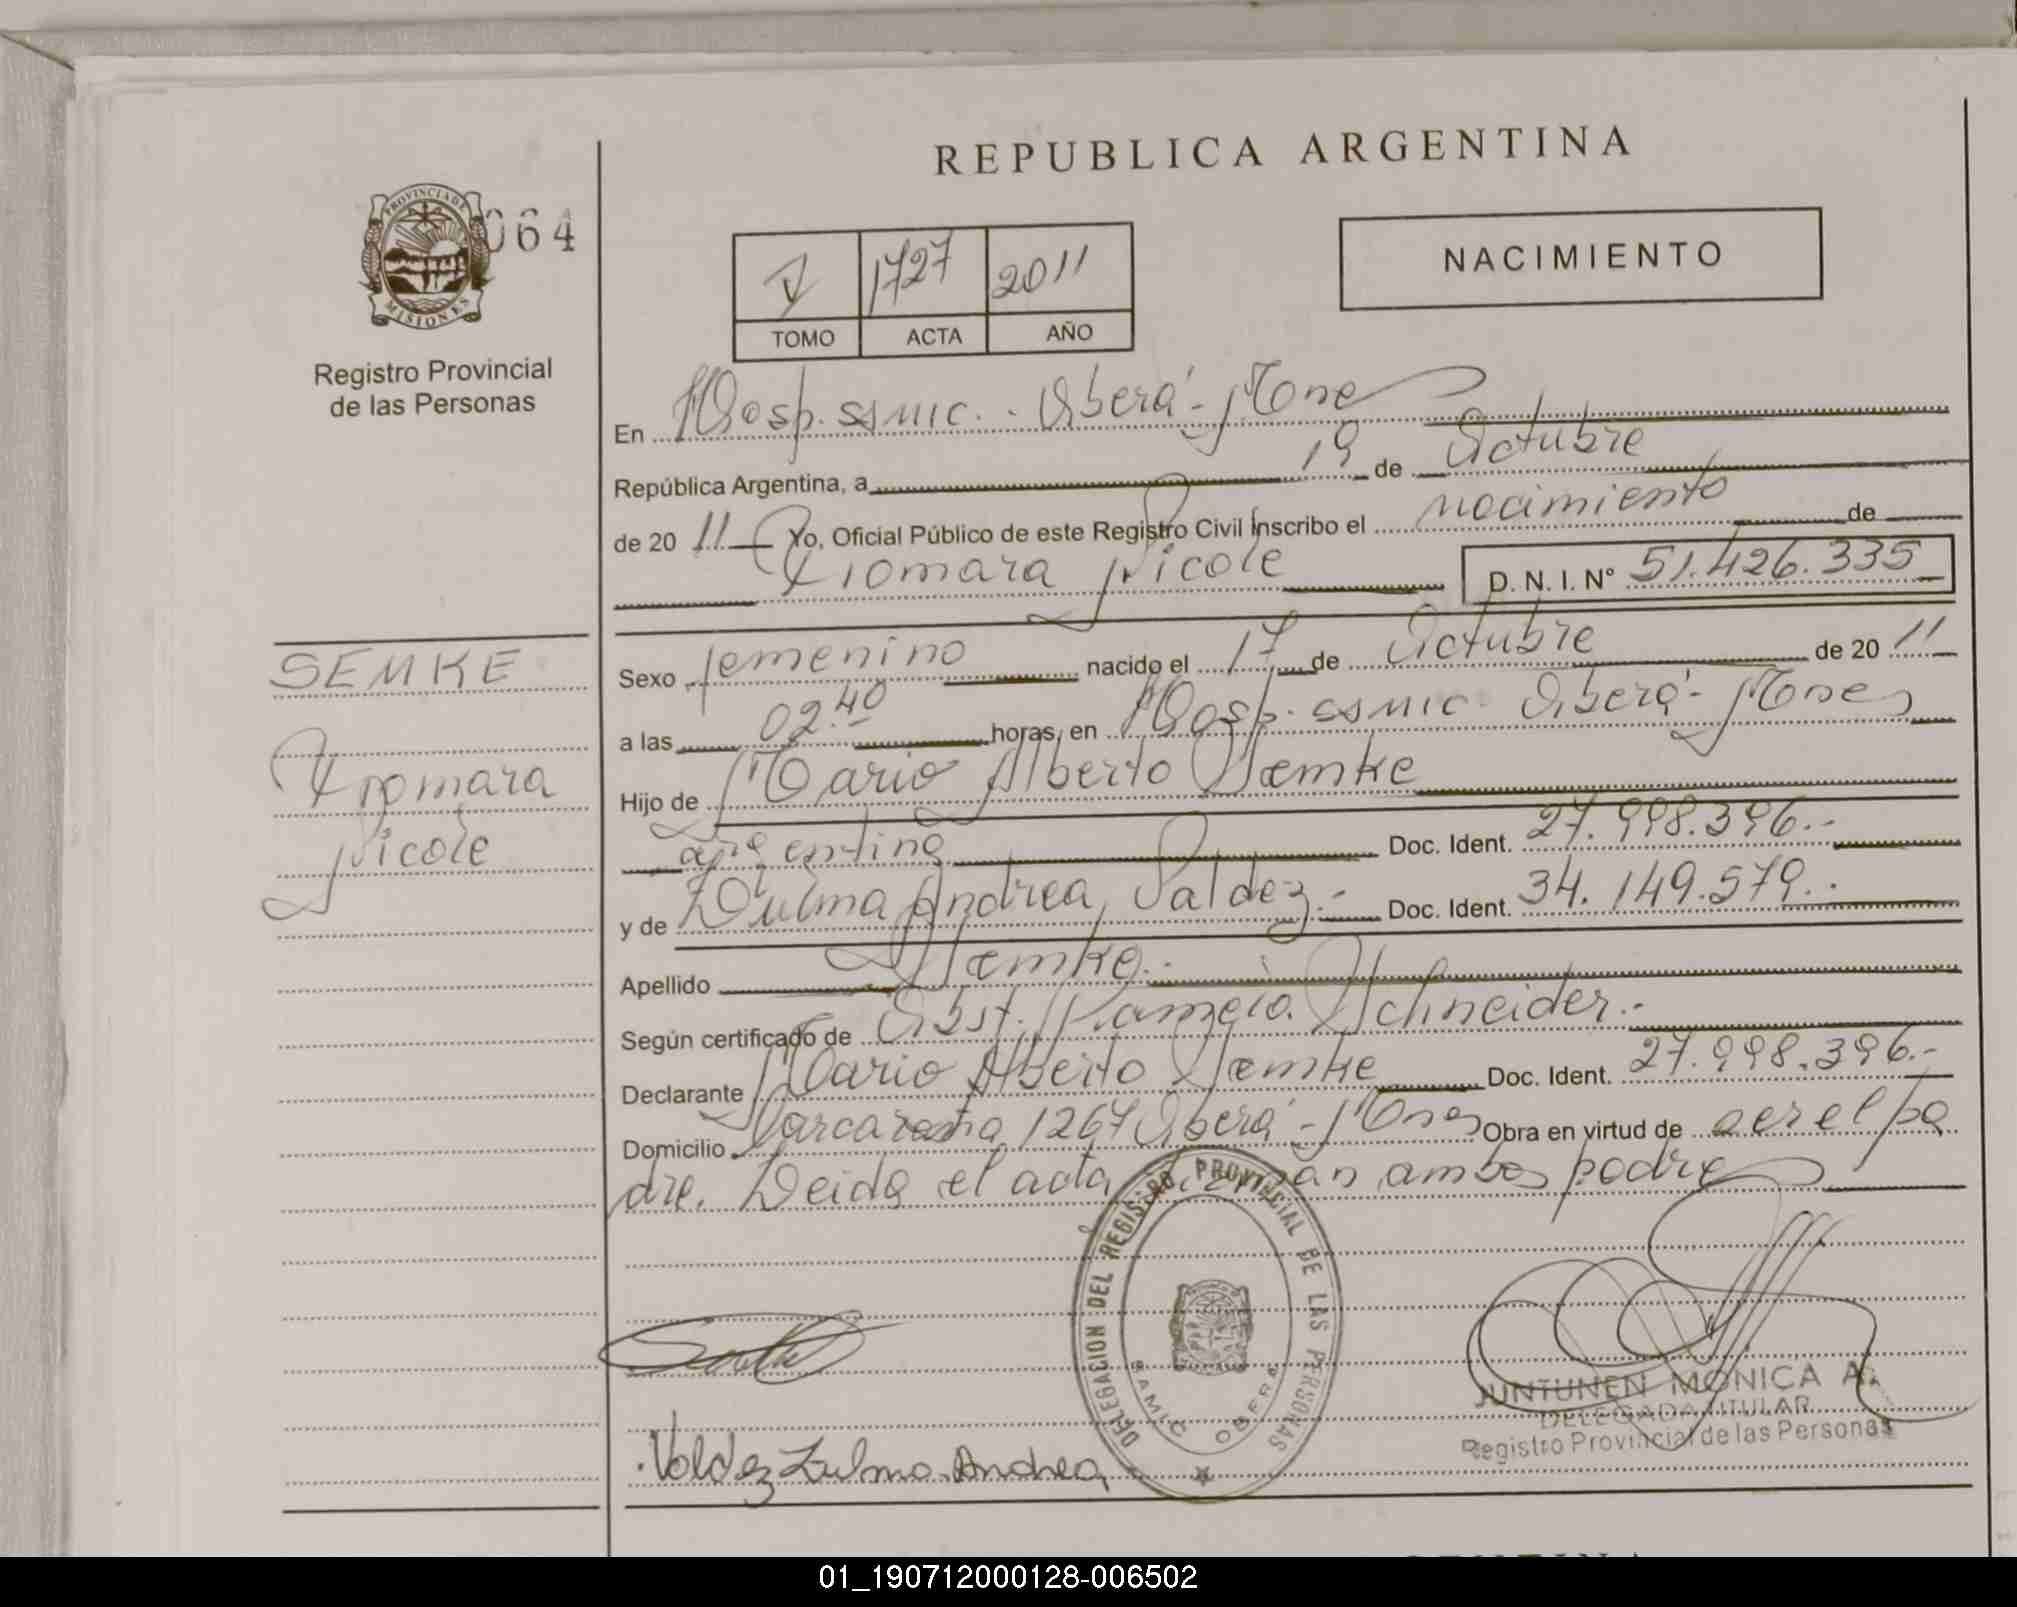 REPUBLICA ARGENTINA
PROVINCIA DE
MISIONES
064
Registro Provincial
de las Personas
V 1727 2011
TOMO ACTA AÑO
NACIMIENTO
En Hosp. SAMIC. Oberá - Mnes
República Argentina, a 19 de Octubre
de 2011 Yo, Oficial Público de este Registro Civil Inscribo el nacimiento de
Xiomara Nicole D. N. I. Nº 51.426.335
SEMKE
Xiomara
Nicole
Sexo femenino nacido el 17 de Octubre de 2011
a las 02.40 horas, en Hosp. SAMIC Oberá - Mnes
Hijo de Mario Alberto Semke
argentina Doc. Ident. 27.998.396.-
y de Zulma Andrea Valdez.- Doc. Ident. 34.149.579.-
Apellido Semke.-
Según certificado de Obst. Pamela Schneider.-
Declarante Mario Alberto Semke Doc. Ident. 27.998.396.-
Domicilio 1267 Oberá - Mnes Obra en virtud de ser el pa
dre. Leida el acta firman ambos padres
DELEGACION DEL REGISTRO PROVINCIAL DE LAS PERSONAS
SAMIC OBERA
JUNTUNEN MONICA A.
DELEGADA TITULAR
Registro Provincial de las Personas
Valdez Zulma Andrea
01_190712000128-006502